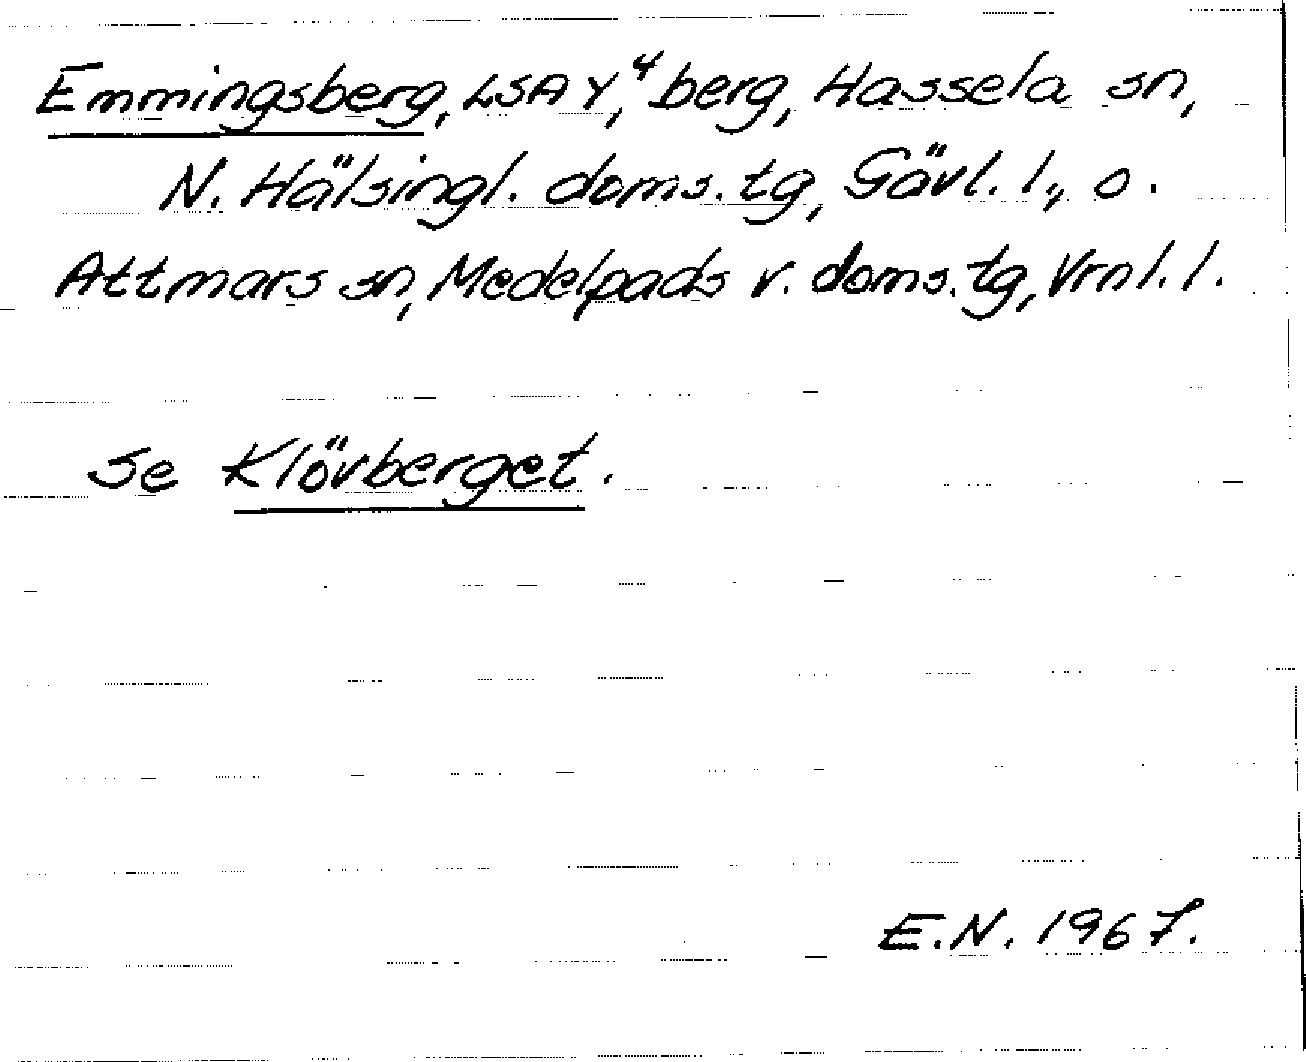 Emmingsberg, LSA Y,⁴ berg, Hassela sn,
N. Hälsingl. doms. tg, Gävl. l., o.
Attmars sn, Medelpads v. doms. tg, Vrnl. l.
se Klövberget.
E.N. 1967.